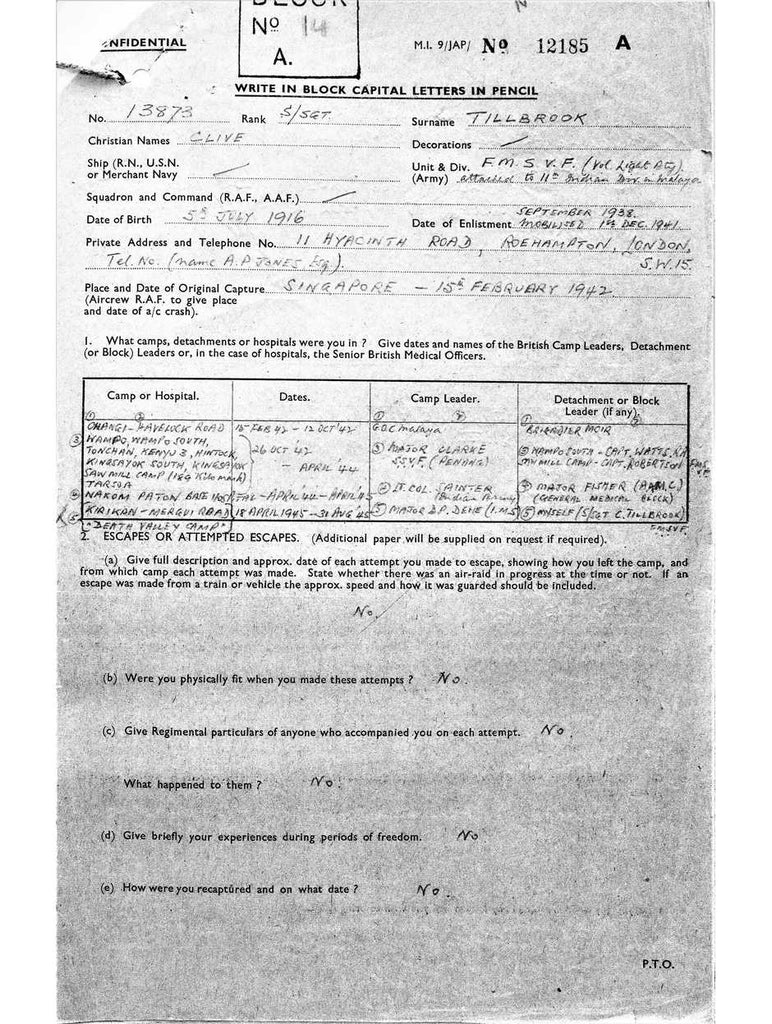 BLOCK
No 14
A.
NFIDENTIAL
M.I. 9/JAP/ No 12185 A
WRITE IN BLOCK CAPITAL LETTERS IN PENCIL
No. 13873 Rank S/SGT. Surname TILLBROOK
Christian Names CLIVE Decorations
Ship (R.N., U.S.N. or Merchant Navy
Unit & Div. (Army) F.M.S.V.F. (Vol. Light Bty) attached to 11th Indian Div. in Malaya
Squadron and Command (R.A.F., A.A.F.)
Date of Birth 5th JULY 1916 Date of Enlistment SEPTEMBER 1938. MOBILISED 1st DEC. 1941.
Private Address and Telephone No. 11 HYACINTH ROAD, ROEHAMPTON, LONDON,
Tel. No. (name A.P. JONES Esq). S.W.15.
Place and Date of Original Capture SINGAPORE - 15th FEBRUARY 1942
(Aircrew R.A.F. to give place
and date of a/c crash).
1. What camps, detachments or hospitals were you in ? Give dates and names of the British Camp Leaders, Detachment
(or Block) Leaders or, in the case of hospitals, the Senior British Medical Officers.
Camp or Hospital. Dates. Camp Leader. Detachment or Block Leader (if any).
① ② ① ② ① ②
CHANGI - HAVELOCK ROAD 15 FEB 42 - 12 OCT '42 G.O.C. Malaya BRIGADIER MOIR
③ WAMPO, WAMPO SOUTH, TONCHAN, KENYU 3, HINTOCK, KINGSAYOK SOUTH, KINGSAYOK SAW MILL CAMP (169 Kilo mark) TARSOA
26 OCT '42 - APRIL '44
③ MAJOR CLARKE S.S.V.F. (PENANG)
③ WAMPO SOUTH - CAPT. WATTS. R.A
SAWMILL CAMP - CAPT. ROBERTSON F.M.S.V.F.
④ NAKOM PATON BASE HOSPITAL - APRIL '44 - APRIL '45 LT. COL. SAINTER (Indian Army) ④ MAJOR FISHER (GENERAL MEDICAL BLOCK)
⑤ KIRIKAN - MERGUI ROAD 18 APRIL 1945 - 31 AUG '45 ⑤ MAJOR (I.M.S) ⑤ MYSELF (S/SGT C. TILLBROOK) F.M.S.V.F.
"DEATH VALLEY CAMP"
2. ESCAPES OR ATTEMPTED ESCAPES. (Additional paper will be supplied on request if required).
(a) Give full description and approx. date of each attempt you made to escape, showing how you left the camp, and
from which camp each attempt was made. State whether there was an air-raid in progress at the time or not. If an
escape was made from a train or vehicle the approx. speed and how it was guarded should be included.
No.
(b) Were you physically fit when you made these attempts ? No.
(c) Give Regimental particulars of anyone who accompanied you on each attempt. No.
What happened to them ? No.
(d) Give briefly your experiences during periods of freedom. No
(e) How were you recaptured and on what date ? No.
P.T.O.